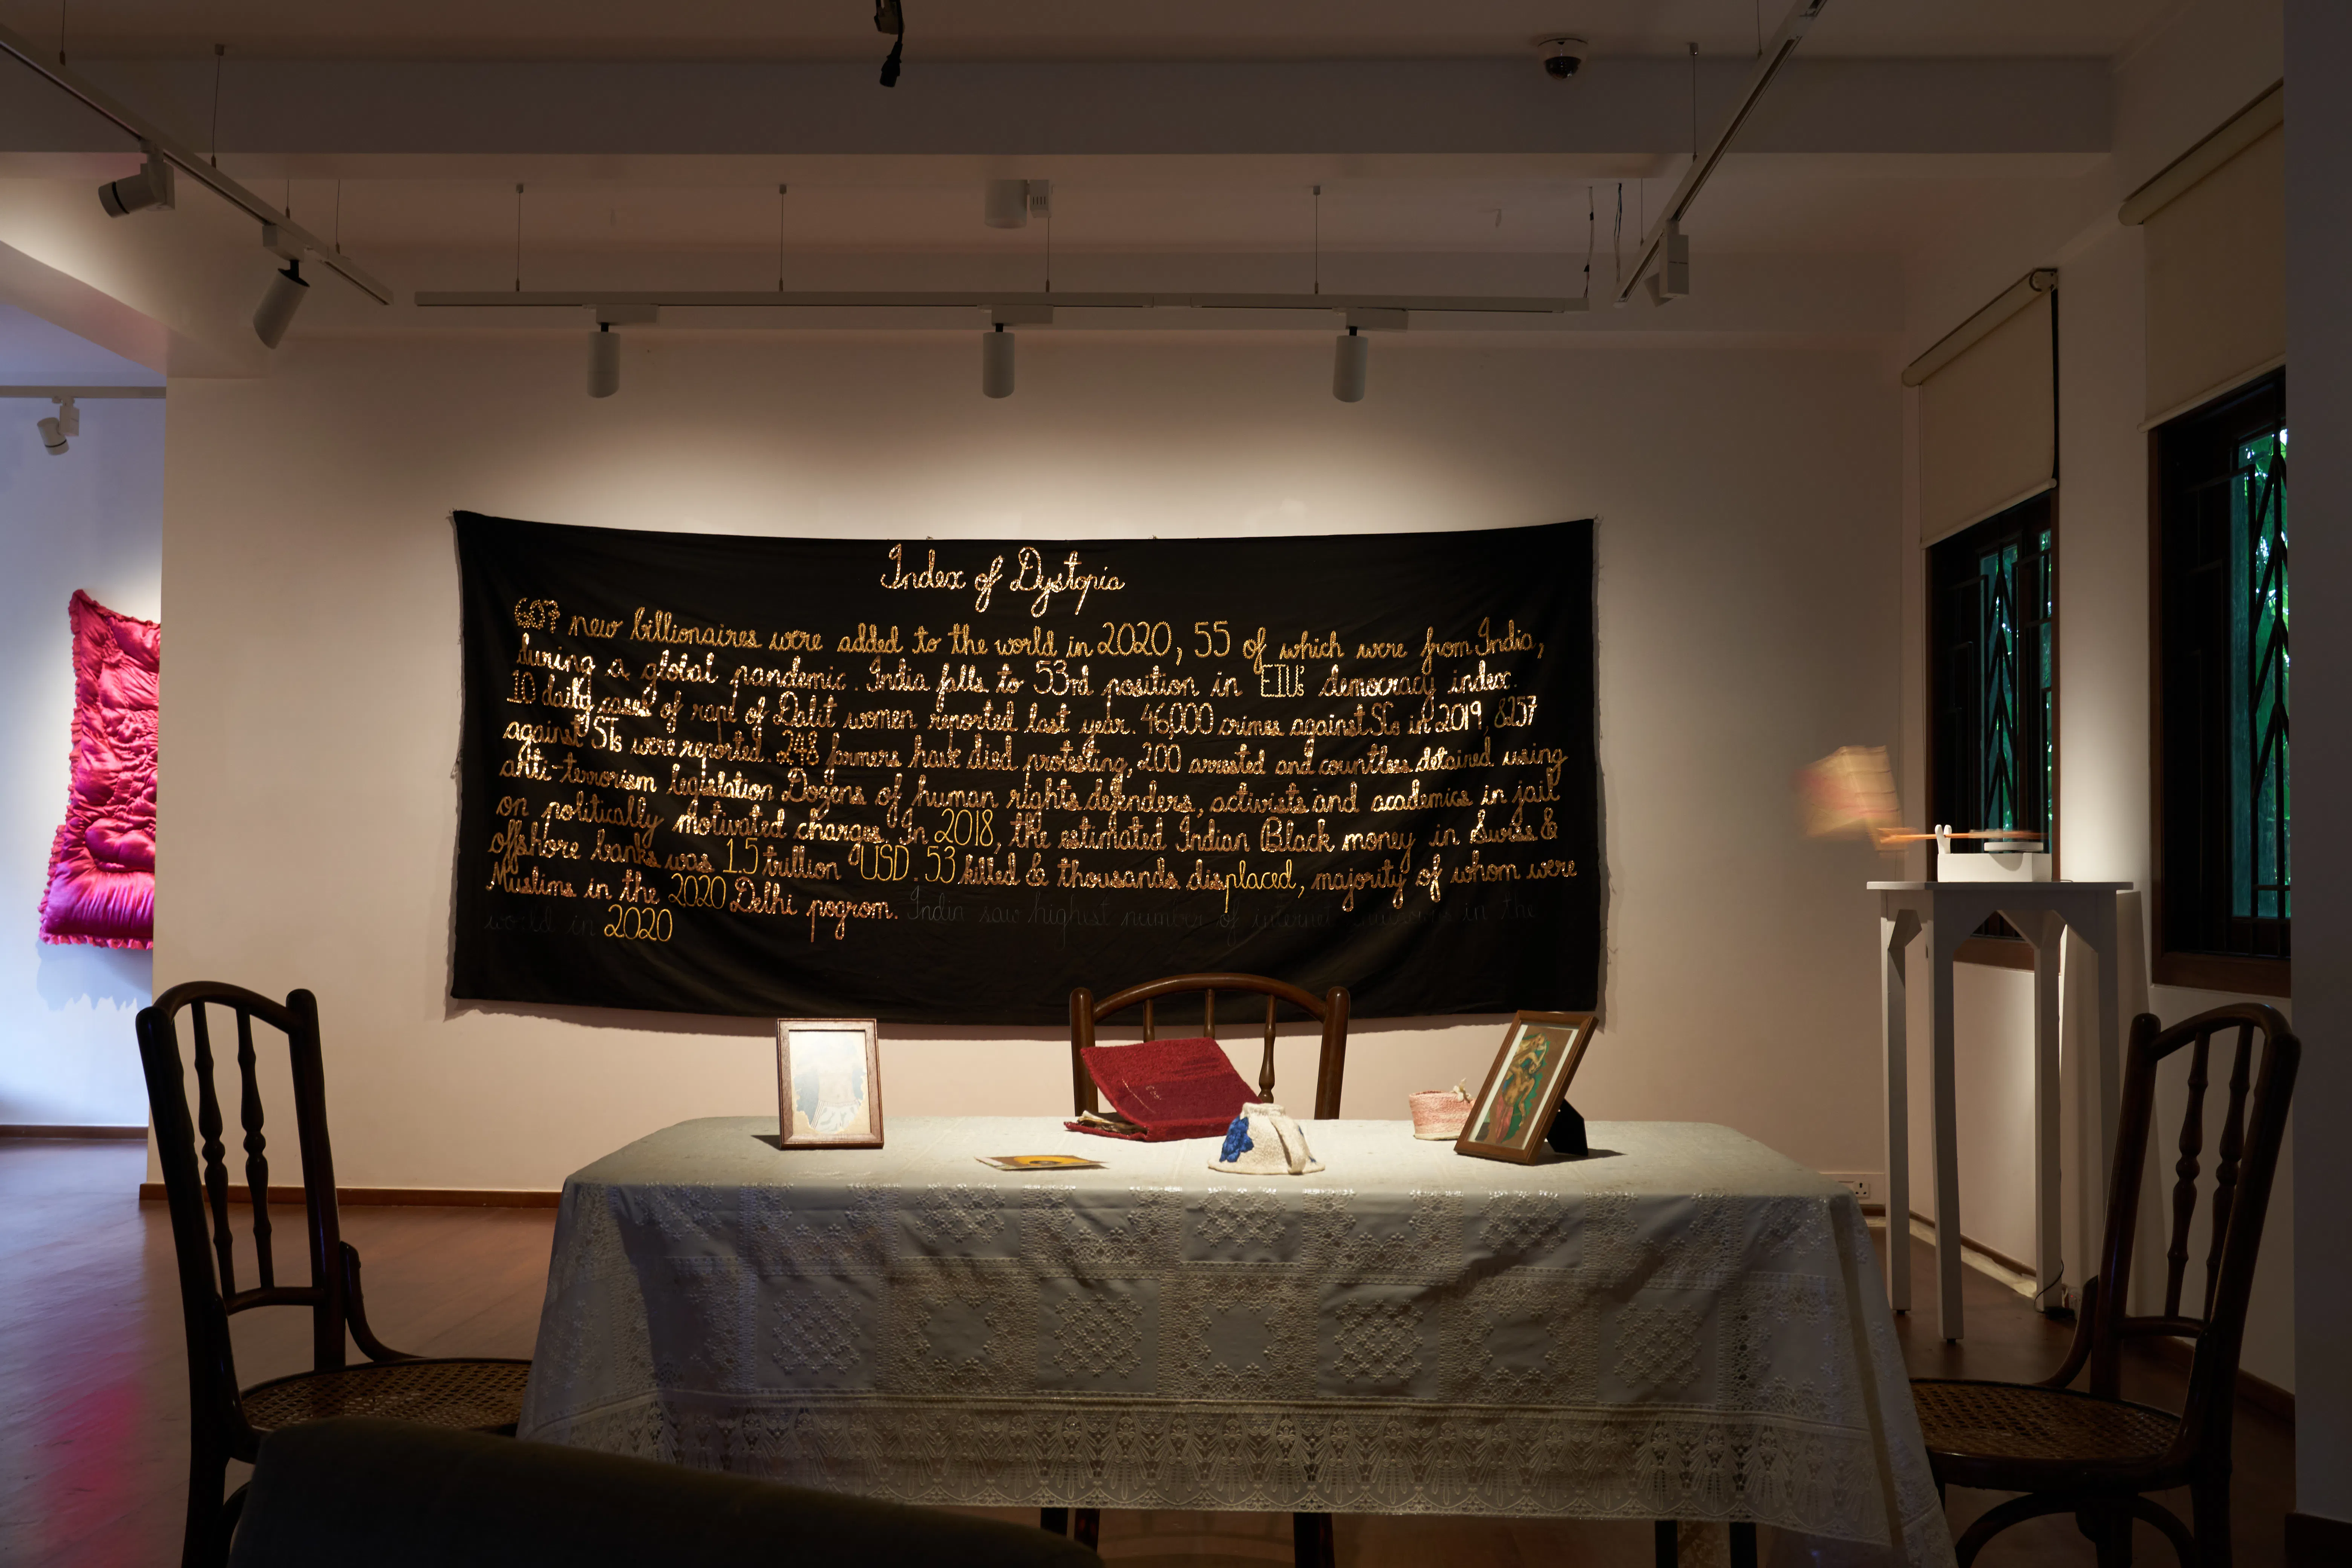 Index of Dystopia
607 new billionaires were added to the world in 2020, 55 of which were from India,
during a global pandemic. India falls to 53rd position in EIUs democracy index.
10 daily cases of rape of Dalit women reported last year. 46,000 crimes against SCs in 2019, 8257
against STs were reported. 248 farmers have died protesting, 200 arrested and countless detained using
anti-terrorism legislation. Dozens of human rights defenders, activists and academics in jail
on politically motivated charges. In 2018, the estimated Indian Black money in Swiss &
offshore banks was 1.5 trillion USD. 53 killed & thousands displaced, majority of whom were
Muslims in the 2020 Delhi pogrom. India saw highest number of internet in the
world in 2020